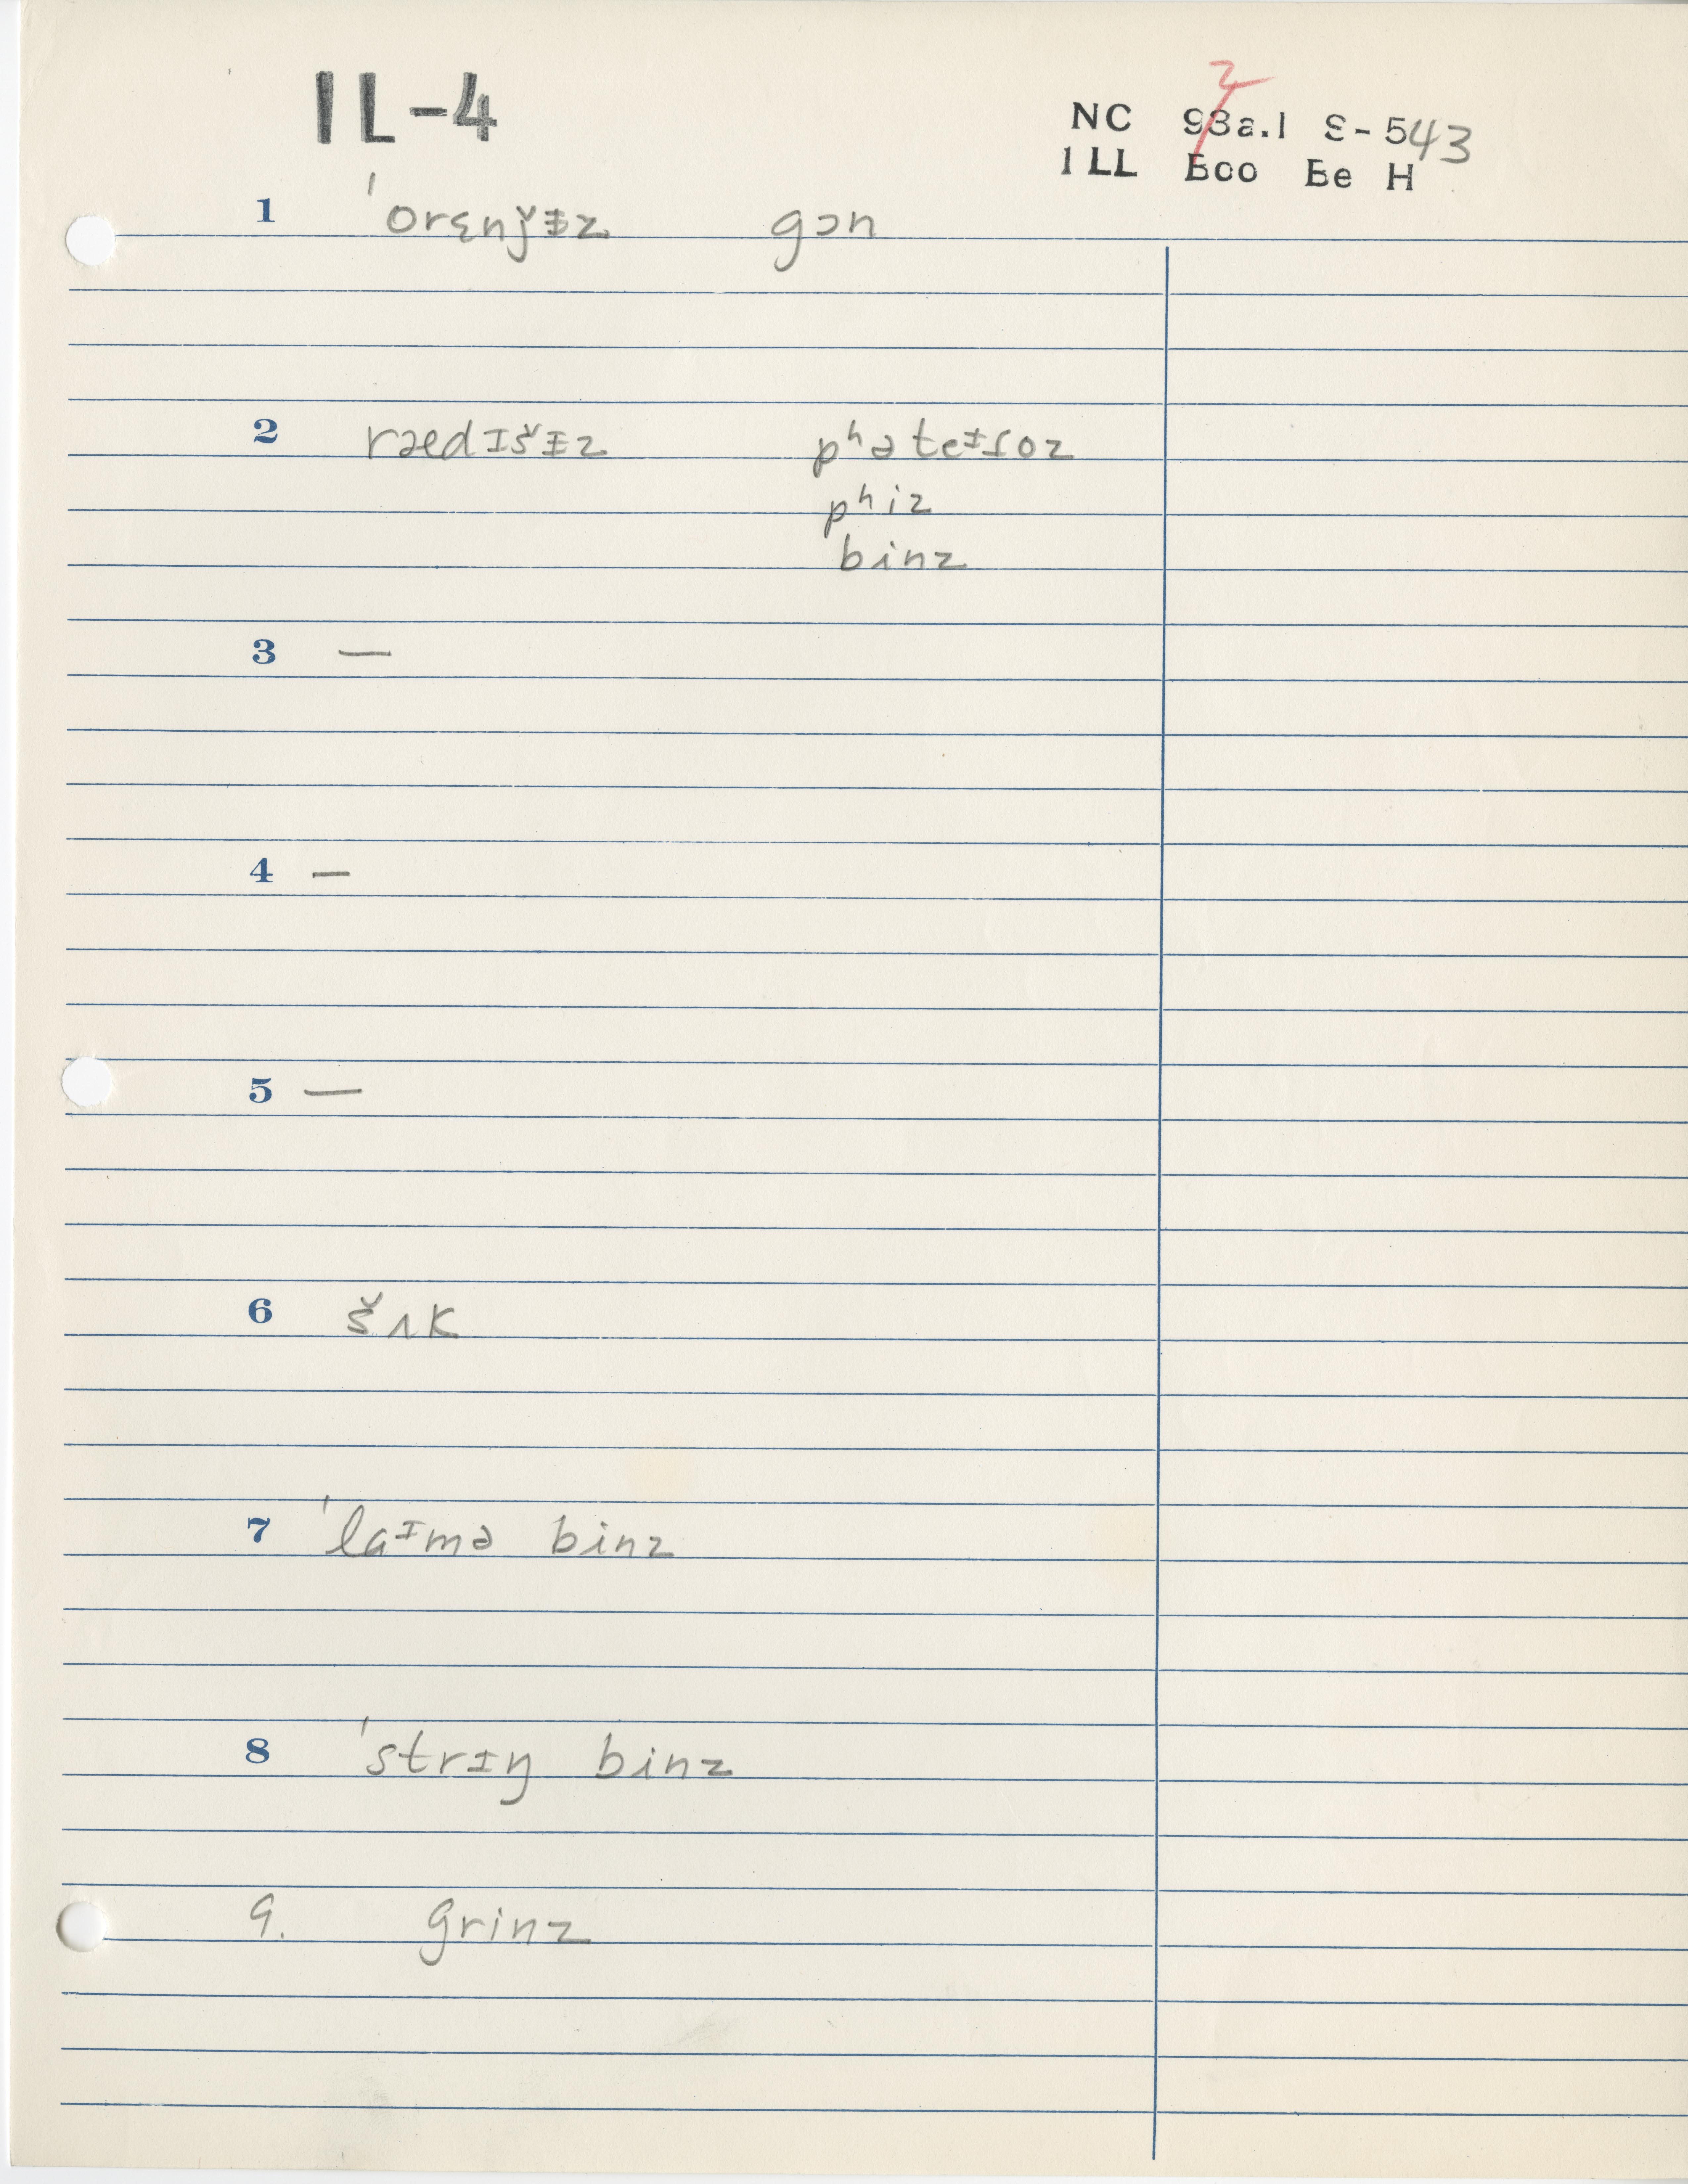 IL-4
2
NC 98a.1 S-543
ILL Boo Be H
1 ˈorɛnǰɪz gɔn
2 rædɪšɪz pʰəteɪɾoz
pʰiz
binz
3 —
4 —
5 —
6 šʌk
7 ˈlaɪmə binz
8 ˈstrɪŋ binz
9. grinz